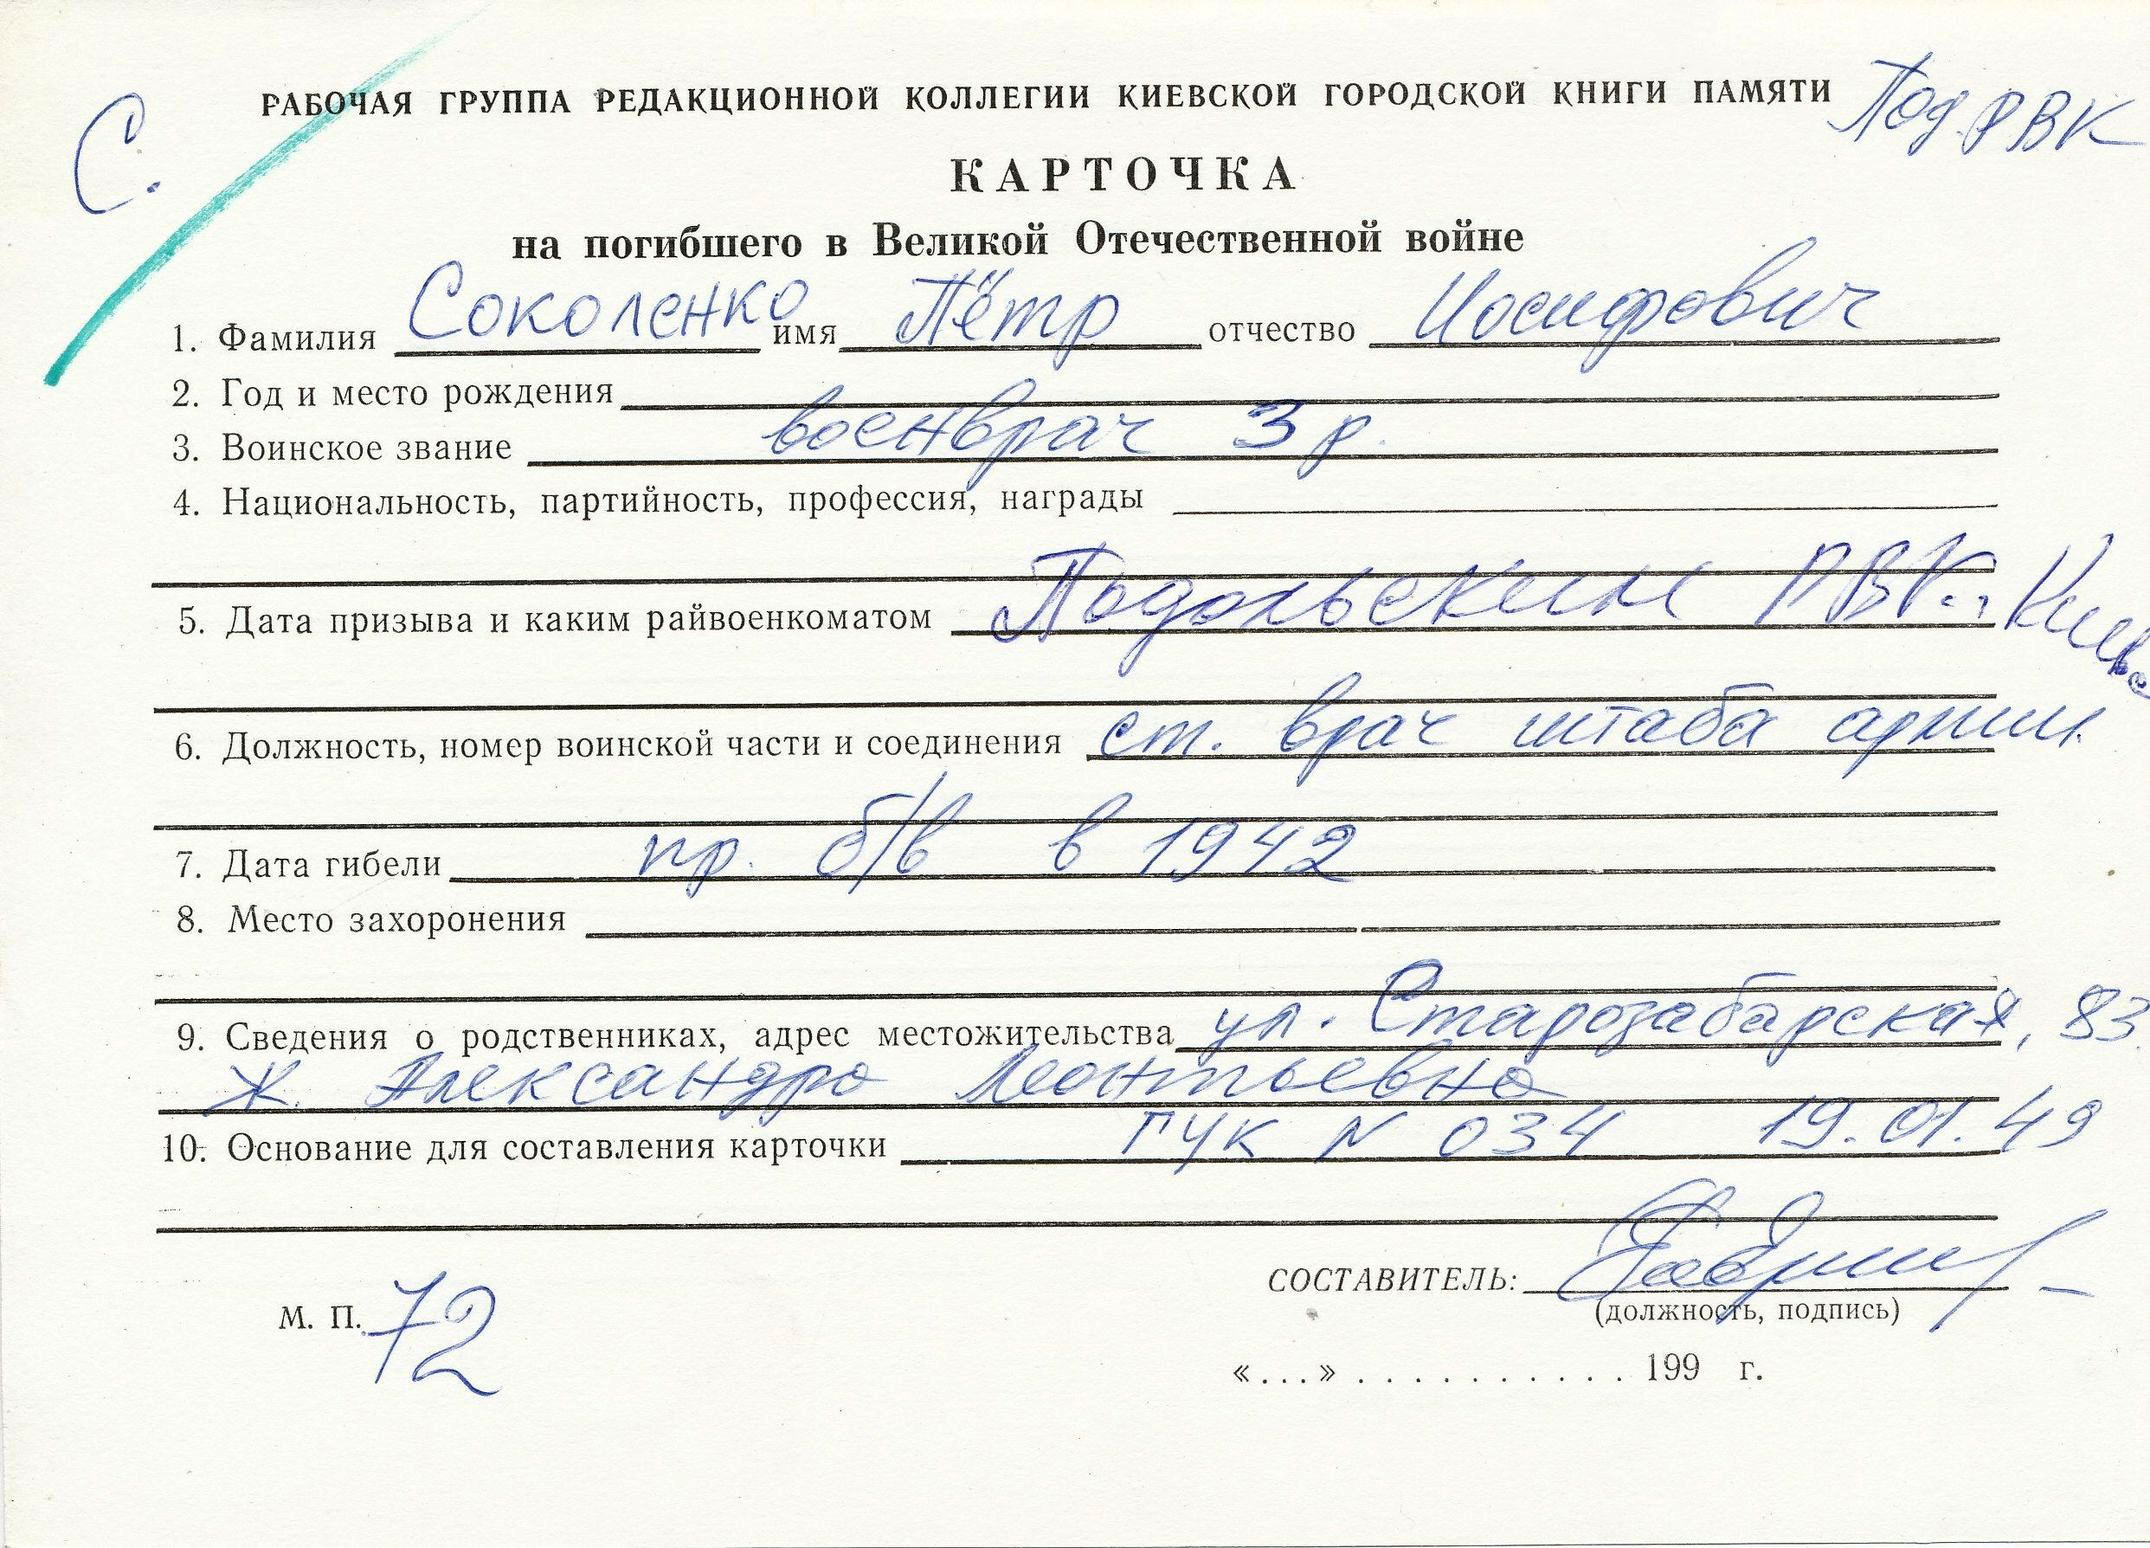 С.
РАБОЧАЯ ГРУППА РЕДАКЦИОННОЙ КОЛЛЕГИИ КИЕВСКОЙ ГОРОДСКОЙ КНИГИ ПАМЯТИ Под. РВК
КАРТОЧКА
на погибшего в Великой Отечественной войне
1. Фамилия Соколенко имя Пётр отчество Иосифович
2. Год и место рождения
3. Воинское звание военврач 3 р.
4. Национальность, партийность, профессия, награды
5. Дата призыва и каким райвоенкоматом Подольским РВК
6. Должность, номер воинской части и соединения ст. врач штаба армии
7. Дата гибели пр. б/в в 1942
8. Место захоронения
9. Сведения о родственниках, адрес местожительства ул. Старозабарская, 83
Ж. Александра Леонтьевна
10. Основание для составления карточки ГУК N 034 19.01.49
СОСТАВИТЕЛЬ:
М. П. 72
(должность, подпись)
«...» . . . . . . . . . . . 199 г.